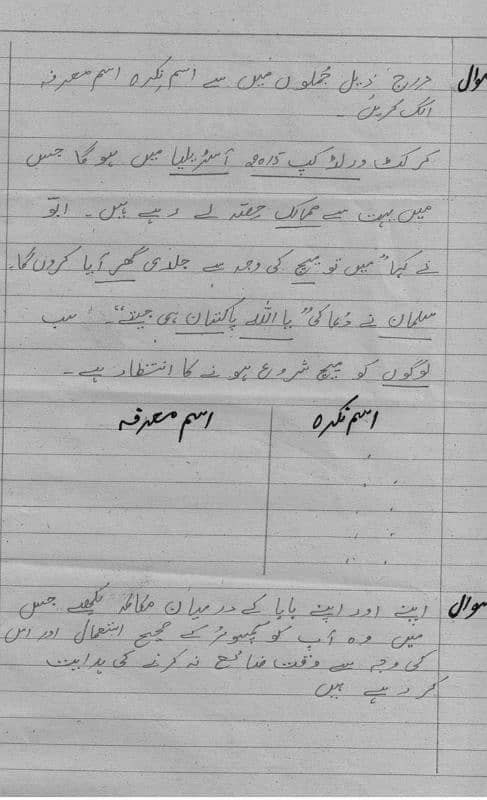 سوال مدرج ذیل جُملوں میں سے اسم نکرہ اسم معرفہ
الگ کریں۔
کرکٹ ورلڈ کپ 2015 آسٹریلیا میں ہو گا جس
میں بہت سے ممالک حِصّہ لے رہے ہیں۔ ابّو
نے کہا "میں تو میچ کی وجہ سے جلدی گھر آیا کروں گا۔
سلمان نے دُعا کی "یا اللہ پاکستان ہی جیتے"۔ سب
لوگوں کو میچ شروع ہونے کا انتظار ہے۔
اسم نکرہ اسم معرفہ
سوال اپنے اور اپنے بابا کے درمیان مکالمہ لکھیے جس
میں وہ آپ کو کمپیوٹر کے صحیح استعمال اور اس
کی وجہ سے وقت ضائع نہ کرنے کی ہدایت
کر رہے ہیں